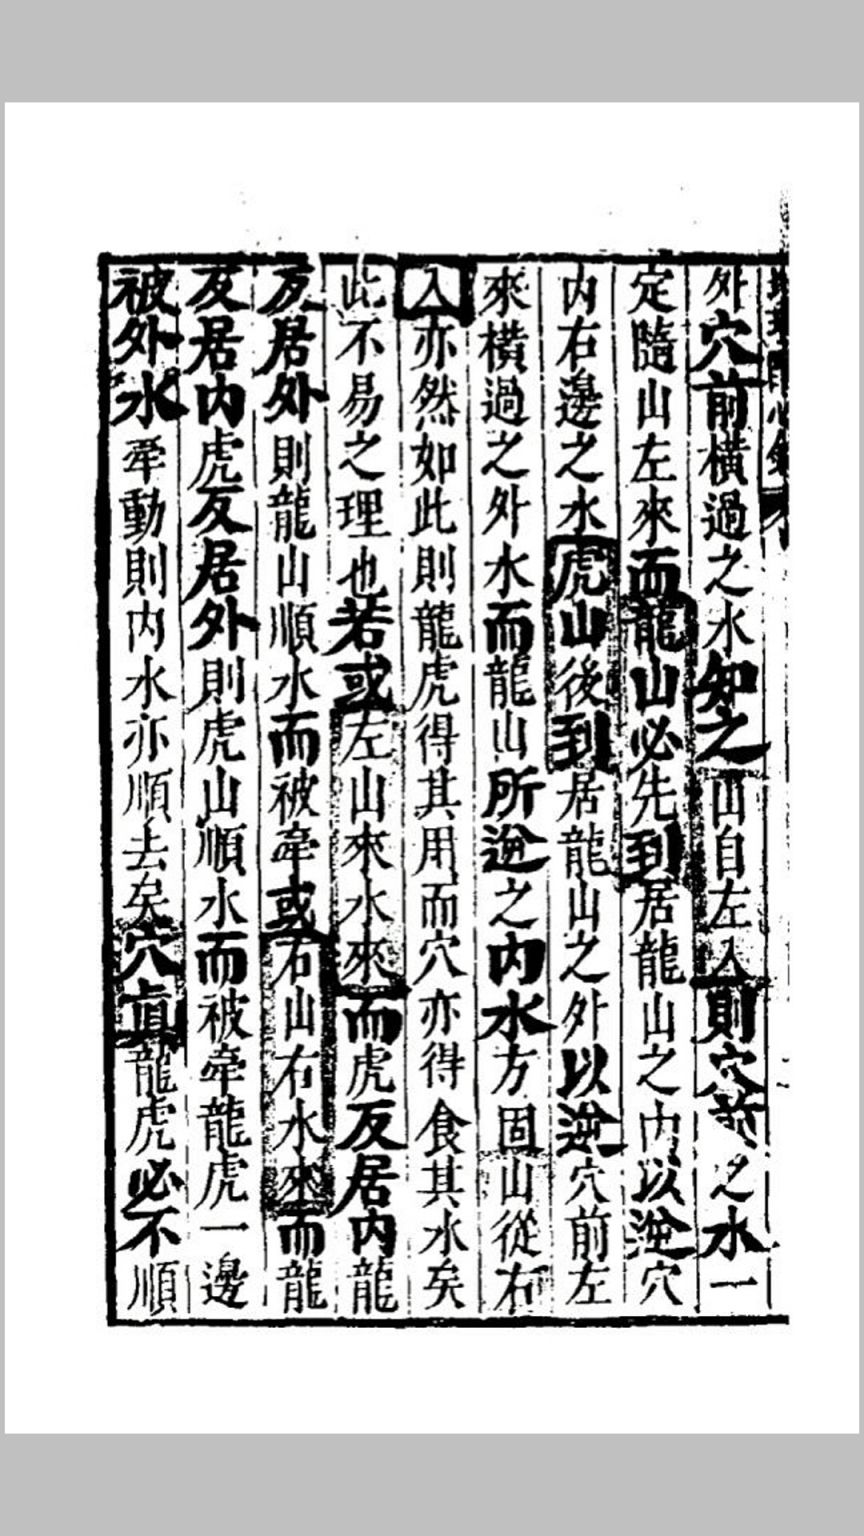 外穴前橫過之水知之山自左入則穴前之水一
定隨山左來而龍山必先到居龍山之內以逆穴
內右邊之水虎山後到居龍山之外以逆穴前左
來橫過之外水而龍山所逆之內水方固山從右
入亦然如此則龍虎得其用而穴亦得食其水矣
此不易之理也若或左山來水來而虎反居內龍
反居外則龍山順水而被牽或右山右水來而龍
反居內虎反居外則虎山順水而被牽龍虎一邊
被外水牽動則內水亦順去矣穴真龍虎必不順